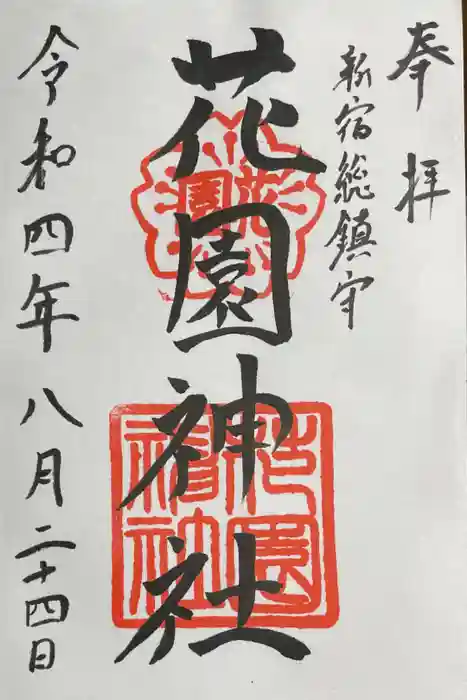 奉拝
新宿総鎮守
花園神社
令和四年八月二十四日
花園
花園
神社